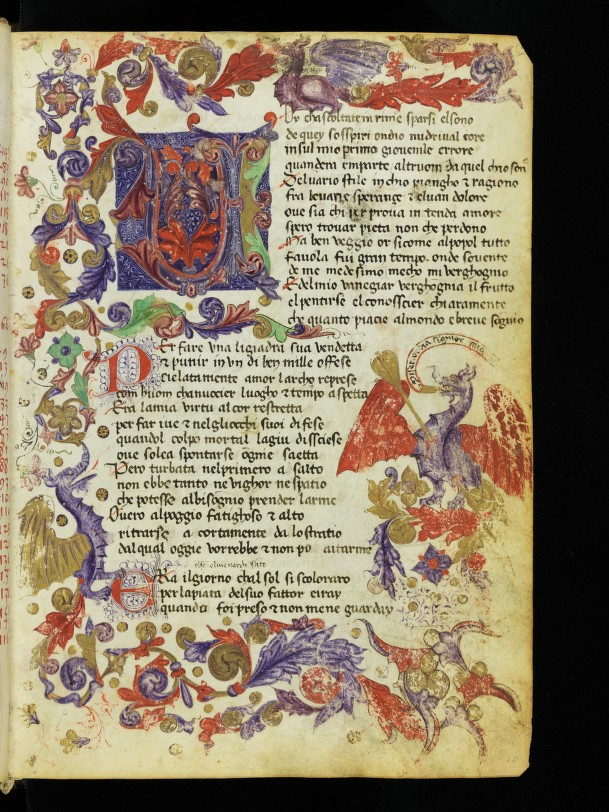 Oy chascoltate in rime sparsi el sono
de quey sosspiri ondio nudriual core
in sul mio primo giouenile errore
quandera emparte altruom da quel chio son
Del uario stile in chio piangho & ragiono
fra leuane speranze & eluan dolore
oue sia chi per proua intenda amore
spero trouar pieta non che perdono
Ma ben veggio or sicome al popol tutto
fauola fui gran tempo. onde souente
de me medesimo mecho mi verghognio
Edelmio vanegiar verghognia il frutto
el pentirse el conosscier chiaramente
che quanto piacie almondo e breue sognio
PEr fare vna ligiadra sua vendetta
& punir in vn di ben mille offese
cielatamente amor larcho represe
com huom cha nuocier luogho & tempo aspetta
Era la mia virtu al cor restretta
per far iue & nel gliocchi suoi difese
quandol colpo mortal lagiu dissciese
oue solea spontarse ogme saetta
Pero turbata nel primero a salto
non ebbe tanto ne vighor ne spatio
che potesse albisognio prender larme
Ouero alpoggio fatighoso & alto
ritrarse a cortamente da lo stratio
dal qual oggie vorrebbe & non po aitarme
ERa il giorno chal sol si scoloraro
per la pieta del suo fattor ei ray
quando foi preso & non mene guarday